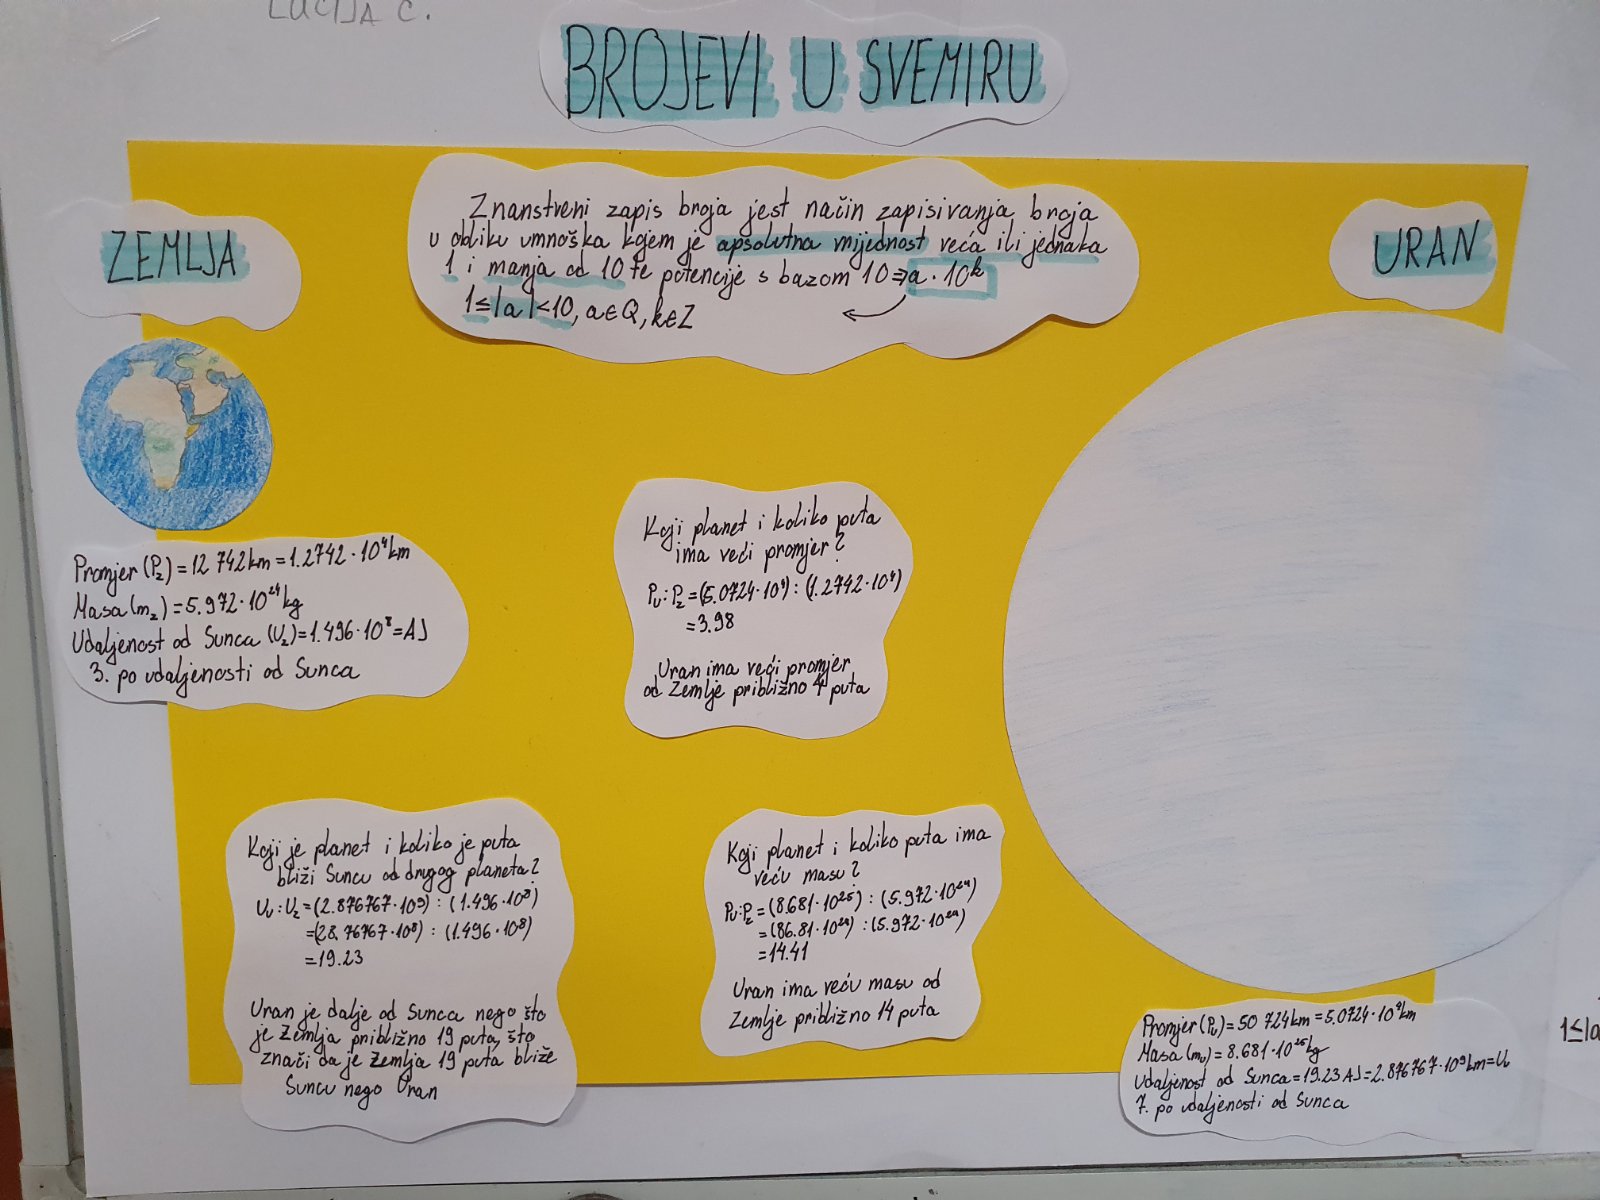 LUCIJA C.
BROJEVI U SVEMIRU
Znanstveni zapis broja jest način zapisivanja broja
u obliku umnoška kojem je apsolutna vrijednost veća ili jednaka
1 i manja od 10 te potencije s bazom 10 ⇒ a · 10^k
1≤|a|<10, a∈Q, k∈Z
ZEMLJA
Promjer (Pz) = 12 742 km = 1.2742 · 10^4 km
Masa (mz) = 5.972 · 10^24 kg
Udaljenost od Sunca (Uz) = 1.496 · 10^8 = AJ
3. po udaljenosti od Sunca
URAN
Koji planet i koliko puta
ima veći promjer?
Pu : Pz = (5.0724 · 10^4) : (1.2742 · 10^4)
= 3.98
Uran ima veći promjer
od Zemlje približno 4 puta
Koji je planet i koliko je puta
bliži Suncu od drugog planeta?
Uu : Uz = (2.876767 · 10^9) : (1.496 · 10^8)
= (28.76767 · 10^8) : (1.496 · 10^8)
= 19.23
Uran je dalje od Sunca nego što
je Zemlja približno 19 puta, što
znači da je Zemlja 19 puta bliže
Suncu nego Uran
Koji planet i koliko puta ima
veću masu?
Pu : Pz = (8.681 · 10^25) : (5.972 · 10^24)
= (86.81 · 10^24) : (5.972 · 10^24)
= 14.41
Uran ima veću masu od
Zemlje približno 14 puta
Promjer (Pu) = 50 724 km = 5.0724 · 10^4 km
Masa (mu) = 8.681 · 10^25 kg
Udaljenost od Sunca = 19.23 AJ = 2.876767 · 10^9 km = Uu
7. po udaljenosti od Sunca
1≤|a